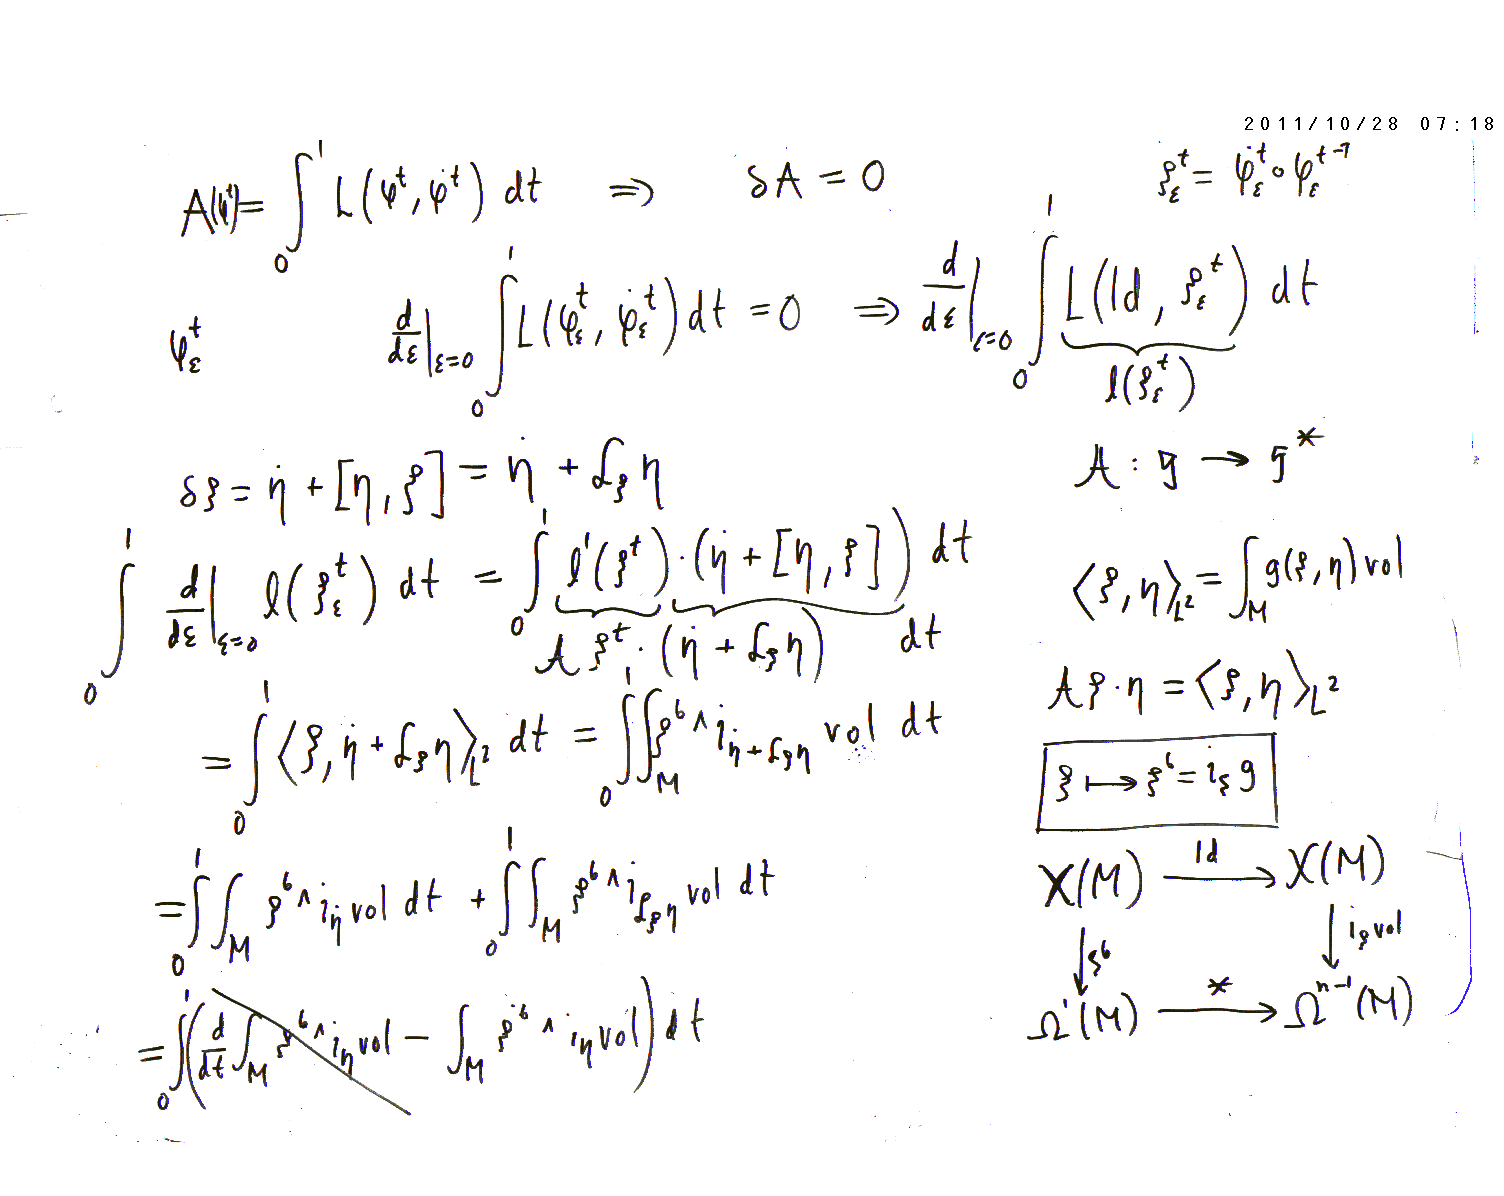 2011/10/28 07:18
A(φᵗ) = ∫₀¹ L(φᵗ, φ̇ᵗ) dt ⇒ δA = 0
ξ_ε^t = φ̇_ε^t ∘ φ_ε^{t -1}
φ_ε^t
d/dε|_{ε=0} ∫₀¹ L(φ_ε^t, φ̇_ε^t) dt = 0 ⇒ d/dε|_{ε=0} ∫₀¹ L(Id, ξ_ε^t) dt
l(ξ_ε^t)
δξ = η̇ + [η, ξ] = η̇ + £_ξ η
A : g → g*
∫₀¹ d/dε|_{ε=0} l(ξ_ε^t) dt = ∫₀¹ l'(ξ^t) · (η̇ + [η, ξ]) dt
A ξ^t · (η̇ + £_ξ η) dt
⟨ξ, η⟩_{L²} = ∫_M g(ξ, η) vol
Aξ · η = ⟨ξ, η⟩_{L²}
= ∫₀¹ ⟨ξ, η̇ + £_ξ η⟩_{L²} dt = ∫₀¹ ∫_M ξ^♭ ∧ i_{η̇ + £_ξ η} vol dt
ξ ↦ ξ^♭ = i_ξ g
= ∫₀¹ ∫_M ξ^♭ ∧ i_η̇ vol dt + ∫₀¹ ∫_M ξ^♭ ∧ i_{£_ξ η} vol dt
X(M) →^{Id} X(M)
↓ ξ^♭ ↓ i_ξ vol
Ω¹(M) →^{*} Ω^{n-1}(M)
= ∫₀¹ (d/dt ∫_M ξ^♭ ∧ i_η vol − ∫_M ξ̇^♭ ∧ i_η vol) dt